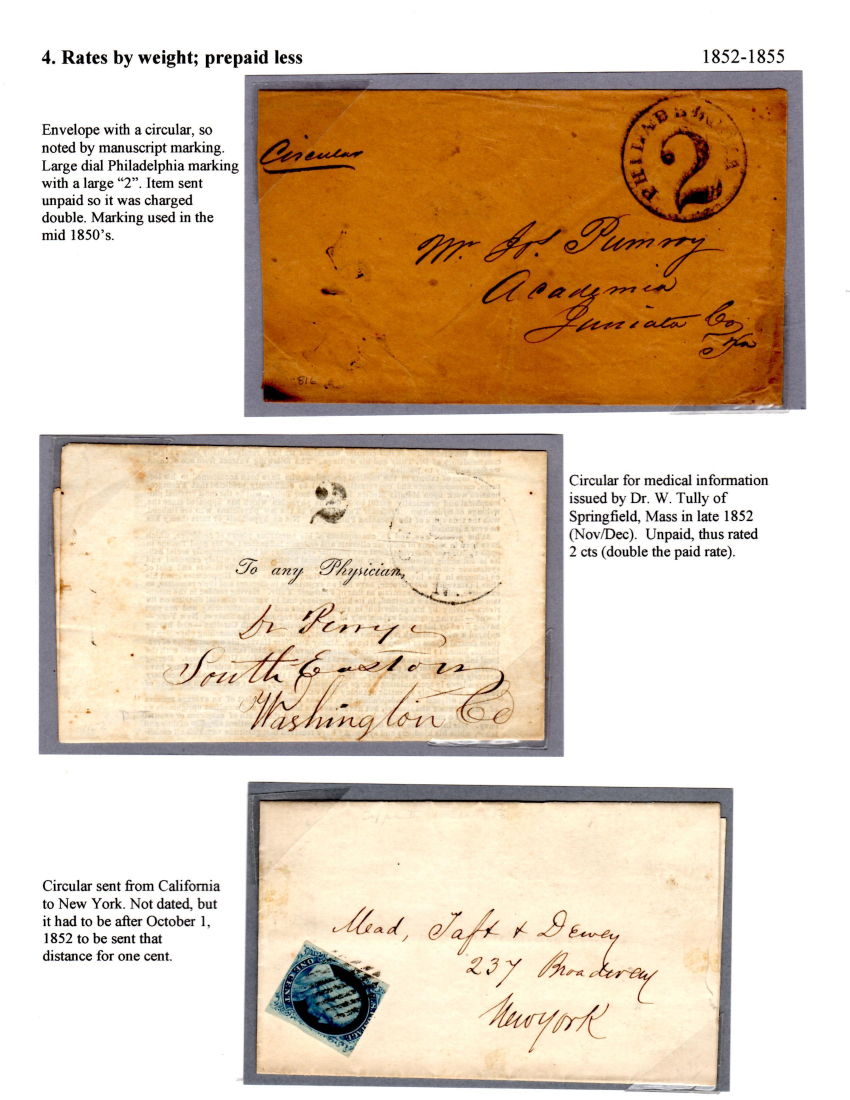 4. Rates by weight; prepaid less 1852-1855
Envelope with a circular, so
noted by manuscript marking.
Large dial Philadelphia marking
with a large “2”. Item sent
unpaid so it was charged
double. Marking used in the
mid 1850’s.
Circular
PHILADELPHIA
2
Mr. Jos. Pumroy
Academia
Juniata Co,
Pa
816
Circular for medical information
issued by Dr. W. Tully of
Springfield, Mass in late 1852
(Nov/Dec). Unpaid, thus rated
2 cts (double the paid rate).
2
To any Physician,
Dr Perry
South Easton
Washington Co
Circular sent from California
to New York. Not dated, but
it had to be after October 1,
1852 to be sent that
distance for one cent.
Mead, Taft & Dewey
237 Broadway
New York
ONE CENT
POSTAGE